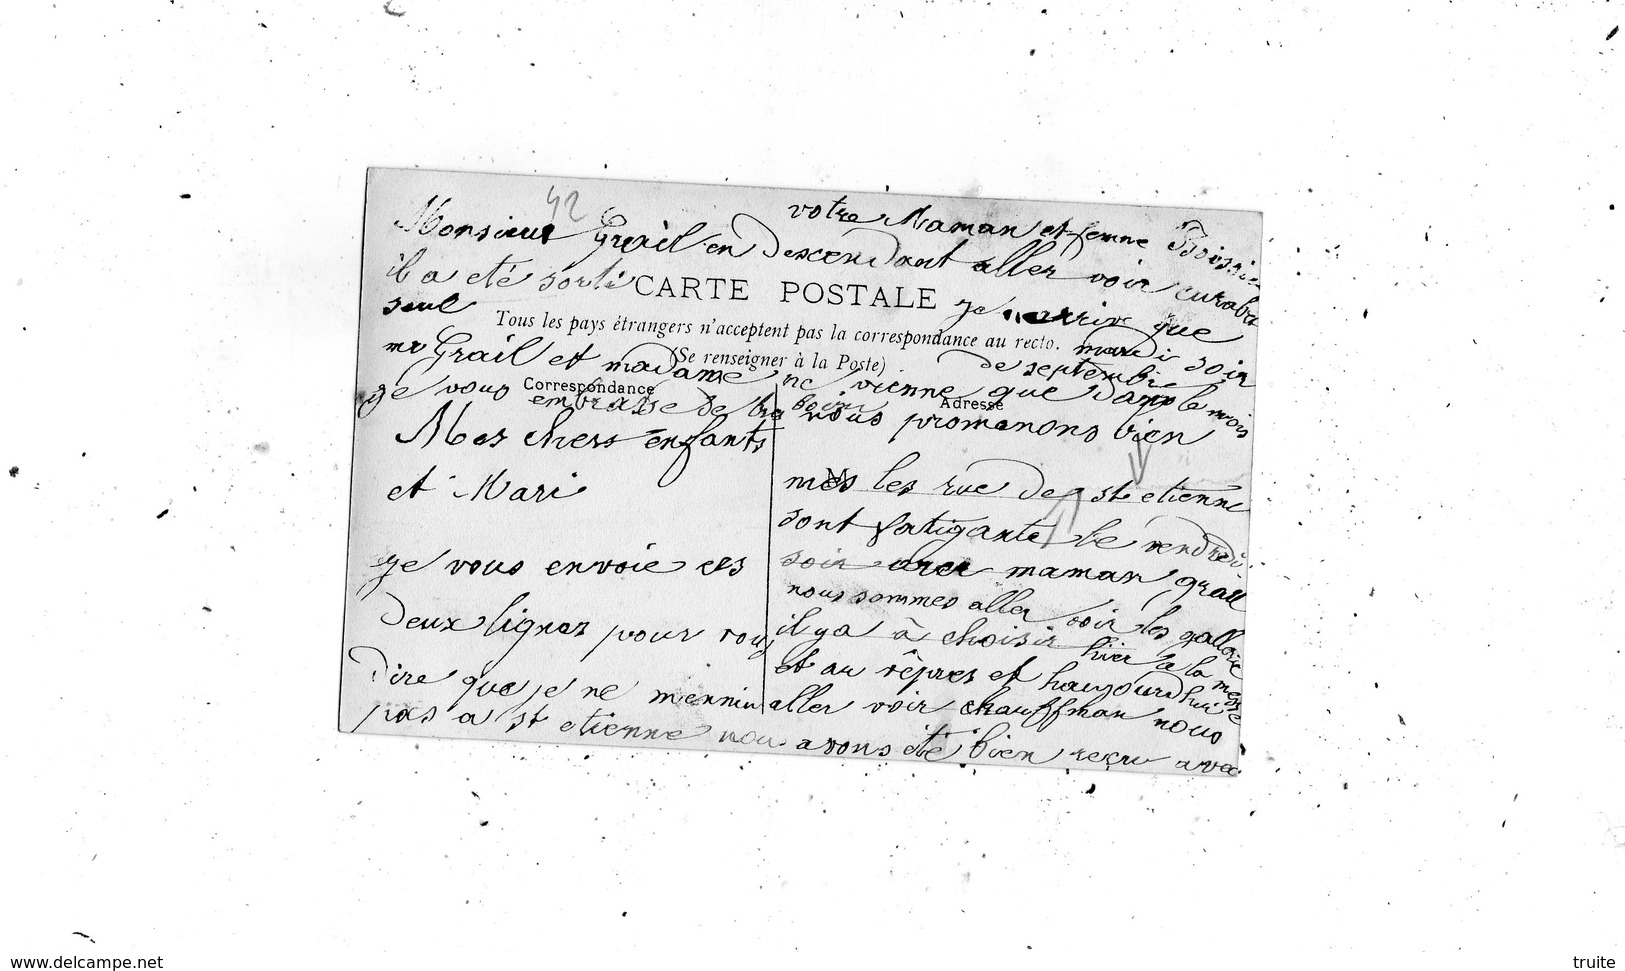 42
votre Maman et femme Boissie
Monsieur Grail en descendant aller voir
il a eté sorti
CARTE POSTALE
seul
je arrive que
Tous les pays étrangers n'acceptent pas la correspondance au recto.
mardi soir
(Se renseigner à la Poste)
mr Grail et madame ne vienne que dans le mois
de septembre
Correspondance
Adresse
ge vous embrasse de
Mes chers enfants
et Mari
ge vous envoie ces
deux lignes pour vous
dire que je ne mennui
pas a st etienne nous avons eté bien recu avec
nous promenons bien
M
mes les rue de st etienne
sont fatigante le vendredi
soir avec maman grail
nous sommes aller voir les gallerie
il ya à choisir hier a la messe
et au vêpres et haujourdhui
aller voir chauffman nous
www.delcampe.net
truite